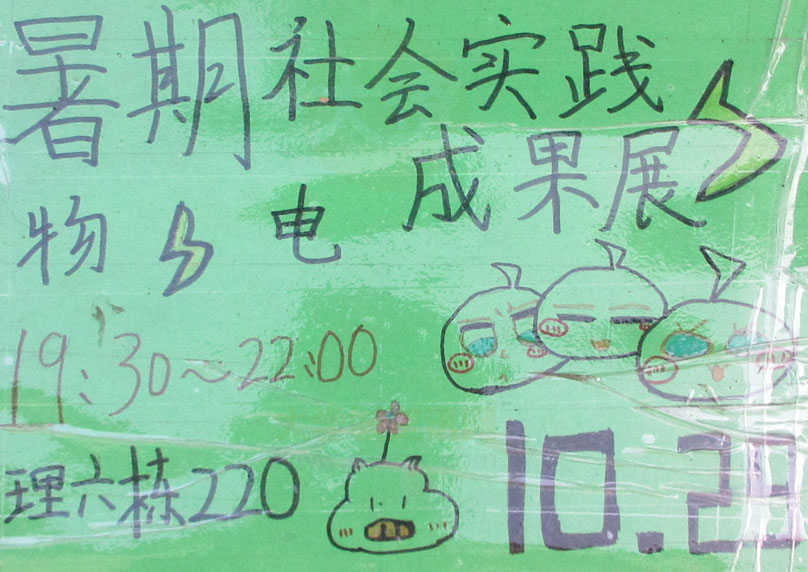 暑期社会实践
成果展
物电
19:30~22:00
理六栋220
10.29